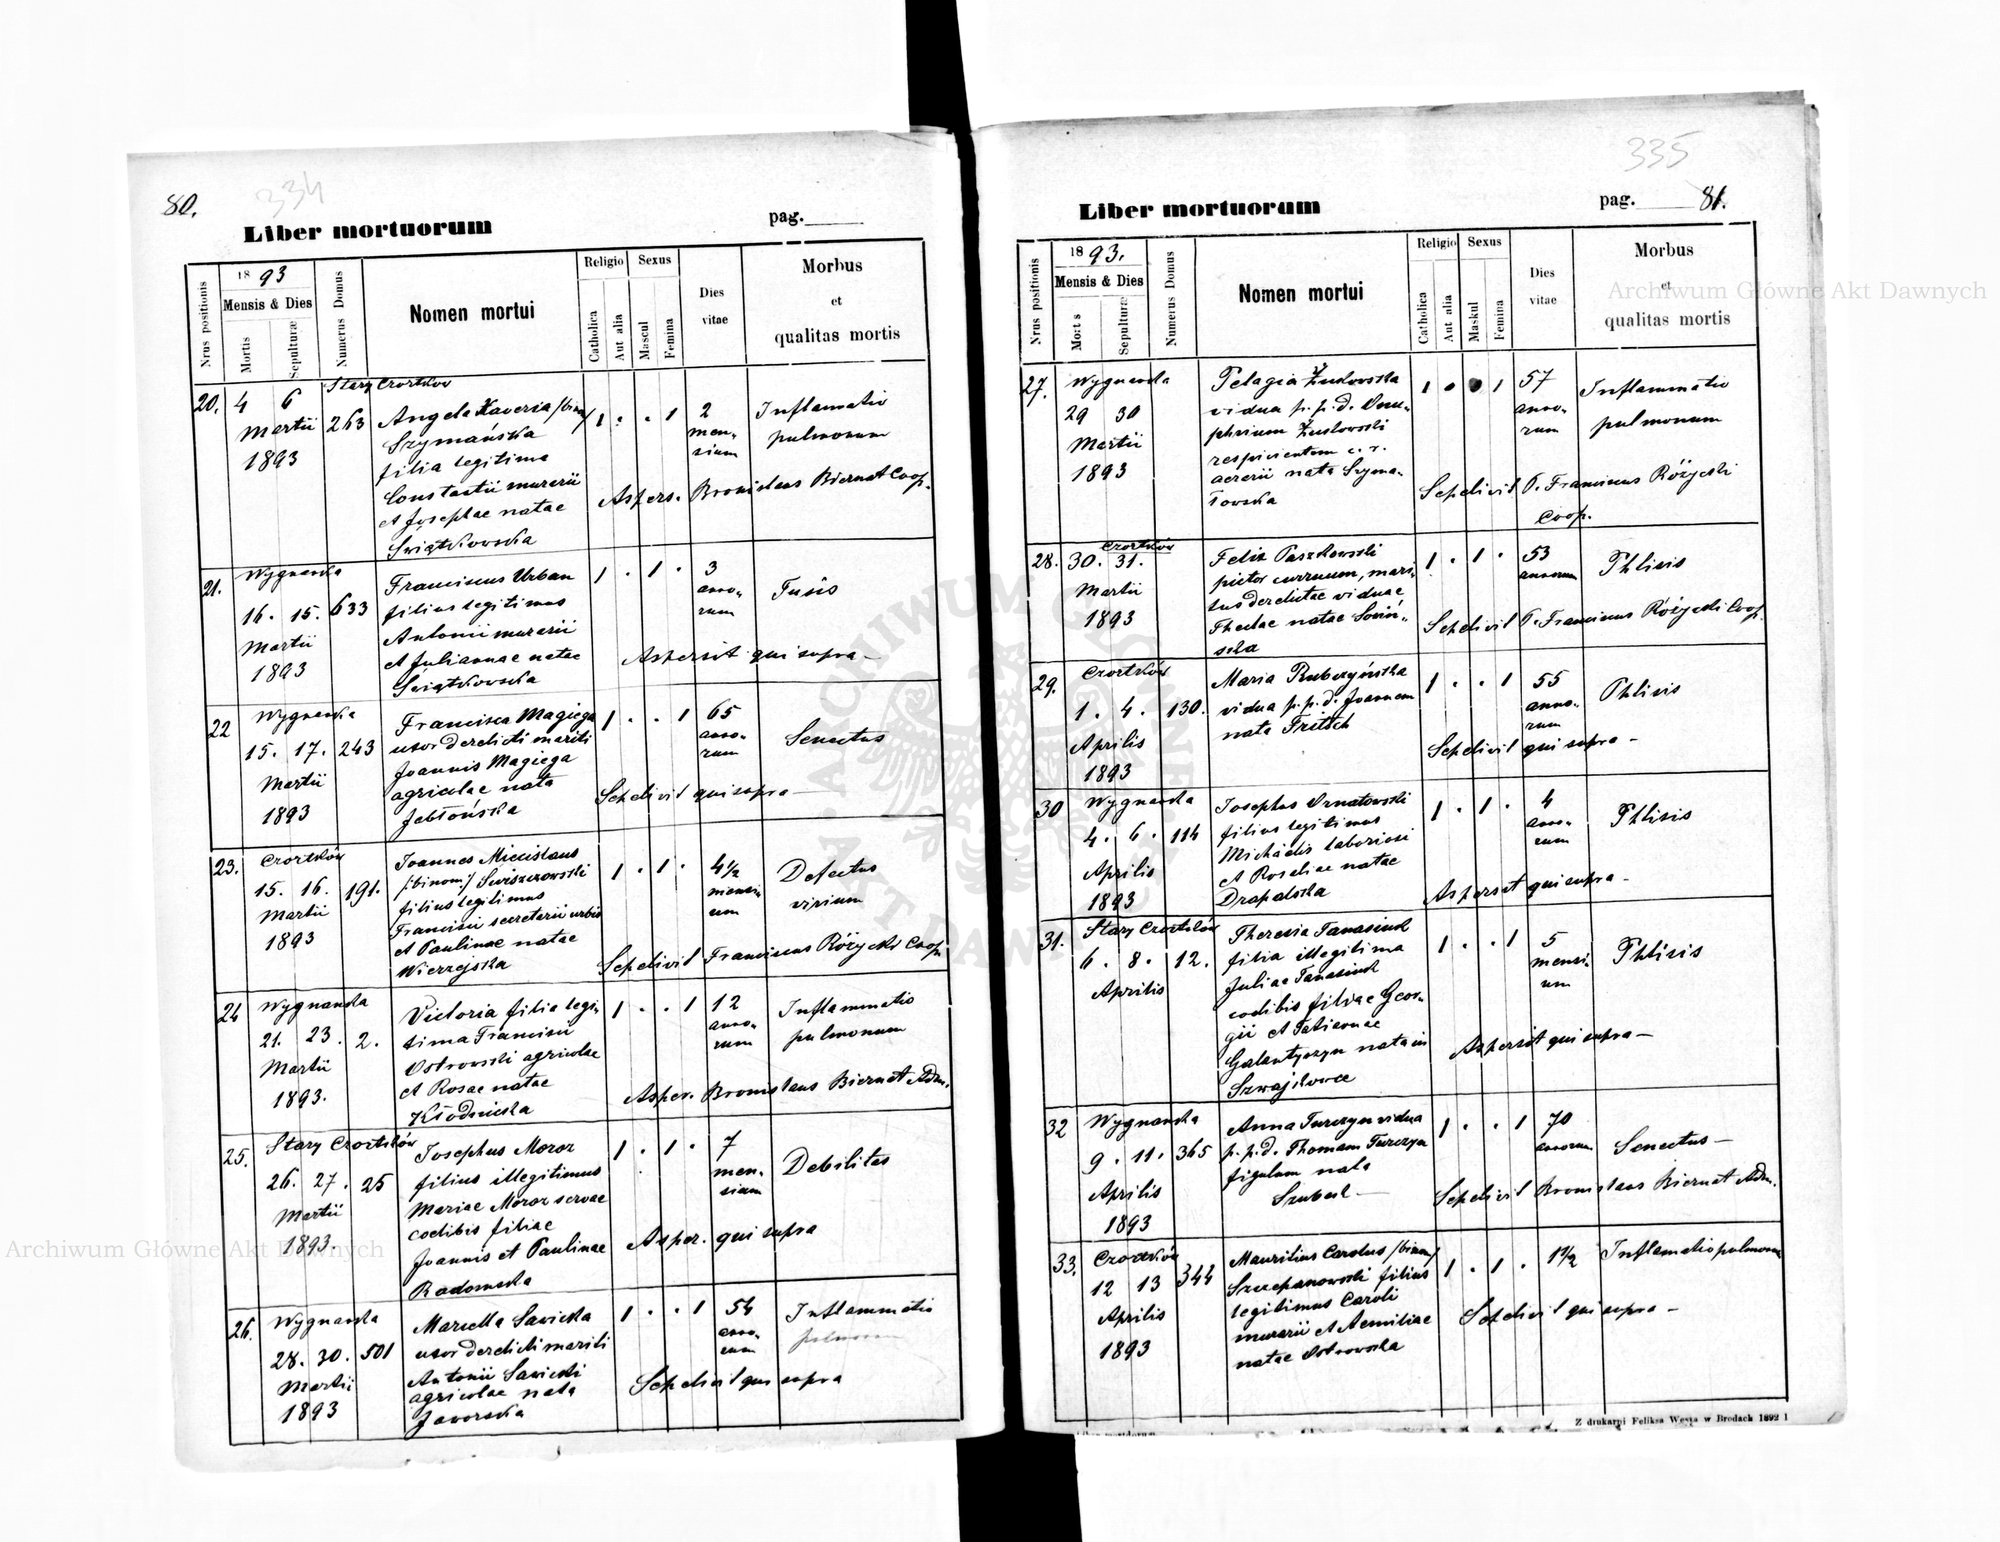 80.
334
Liber mortuorum
pag.
Nrus positionis
1893
Mensis & Dies
Mortis
Sepulturæ
Numerus Domus
Nomen mortui
Religio
Catholica
Aut alia
Sexus
Mascul
Femina
Dies
vitae
Morbus
et
qualitas mortis
20. 4 6 Stary Czortków
Martii 263
1893
Angela Xaveria /binom/
Szymańska
filia legitima
Constantii murarii
et Josephae natae
Świątkowska
1 . . 1
2
men-
sium
Inflamatio
pulmonum
Aspers. Bronislaus Biernat Coop.
21. Wygnanka
16. 15. 633
Martii
1893
Franciscus Urban
filius legitimus
Antonii murarii
et Juliannae natae
Świątkowska
1 . 1 .
3
anno-
rum
Tusis
Aspersit qui supra —
22 Wygnanka
15. 17. 243
Martii
1893
Francisca Magiega
uxor derelicti mariti
Joannis Magiega
agricolae nata
Jabłońska
1 . . 1
65
anno-
rum
Senectus
Sepelivit qui supra —
23. Czortków
15. 16. 191.
Martii
1893
Joannes Miecislaus
/:binom:/ Świszczowski
filius legitimus
Francisci secretarii urbis
et Paulinae natae
Wierzejska
1 . 1 .
4½
mensi-
um
Defectus
virium
Sepelivit Franciscus Różycki Coop.
24 Wygnanka
21. 23. 2.
Martii
1893.
Victoria filia legi-
tima Francisci
Ostrowski agricolae
et Rosae natae
Kłodnicka
1 . . 1
12
anno-
rum
Inflammatio
pulmonum
Asper. Bronislaus Biernat Adm.
25. Stary Czortków
26. 27. 25
Martii
1893.
Josephus Moroz
filius illegitimus
Mariae Moroz servae
coelibis filiae
Joannis et Paulinae
Radomska
1 . 1 .
7
men-
sium
Debilitas
Asper. qui supra
26. Wygnanka
28. 30. 501
Martii
1893
Marcella Sawicka
uxor derelicti mariti
Antonii Sawicki
agricolae nata
Jaworska
1 . . 1
54
anno-
rum
Inflammatio
pulmonum
Sepelivit qui supra
335
Liber mortuorum
pag. 81.
Nrus positionis
1893.
Mensis & Dies
Morts
Sepulturæ
Numerus Domus
Nomen mortui
Religio
Catholica
Aut alia
Sexus
Maskul
Femina
Dies
vitae
Morbus
et
qualitas mortis
27. Wygnanka
29 30
Martii
1893
Pelagia Żuslowska
vidua p. p. d. Onu-
phrium Żuslowski
respicientem c. r.
aerarii nata Szyma-
łowska
1 . . 1
57
anno-
rum
Inflammatio
pulmonum
Sepelivit P. Franciscus Różycki
Coop.
28. Czortków
30. 31.
Martii
1893
Felix Paszkowski
pictor curruum, mari-
tus derelictae viduae
Theclae natae
1 . 1 .
53
annorum
Phtisis
Sepelivit P. Franciscus Różycki Coop.
29. Czortków
1. 4. 130.
Aprilis
1893
Maria Rubczyńska
vidua p. p. d. Joannem
nata Fritsch
1 . . 1
55
anno-
rum
Phtisis
Sepelivit qui supra —
30 Wygnanka
4. 6. 114
Aprilis
1893
Josephus Ornatowski
filius legitimus
Michaelis laboriosi
et Rosaliae natae
Drapalska
1 . 1 .
4
anno-
rum
Phtisis
Aspersit qui supra —
31. Stary Czortków
6. 8. 12.
Aprilis
Theresia Tanasiuk
filia illegitima
Juliae Tanasiuk
coelibis filiae Geor-
gii et Tatiannae
Galantyczyn nata in
Szwajkowce
1 . . 1
5
mensi-
um
Phtisis
Aspersit qui supra —
32 Wygnanka
9. 11. 365
Aprilis
1893
Anna Turczyn vidua
p. p. d. Thomam Turczyn
figulum nata
Szubert —
1 . . 1
70
annorum
Senectus —
Sepelivit Bronislaus Biernat Adm.
33. Czortków
12 13 344
Aprilis
1893
Mauritius Carolus /binom/
Szczepanowski filius
legitimus Caroli
murarii et Aemiliae
natae Ostrowska
1 . 1 .
1½
Inflamatio pulmonum
Sepelivit qui supra —
Z drukarni Feliksa Westa w Brodach 1892 1
Archiwum Główne Akt Dawnych
Archiwum Główne Akt Dawnych